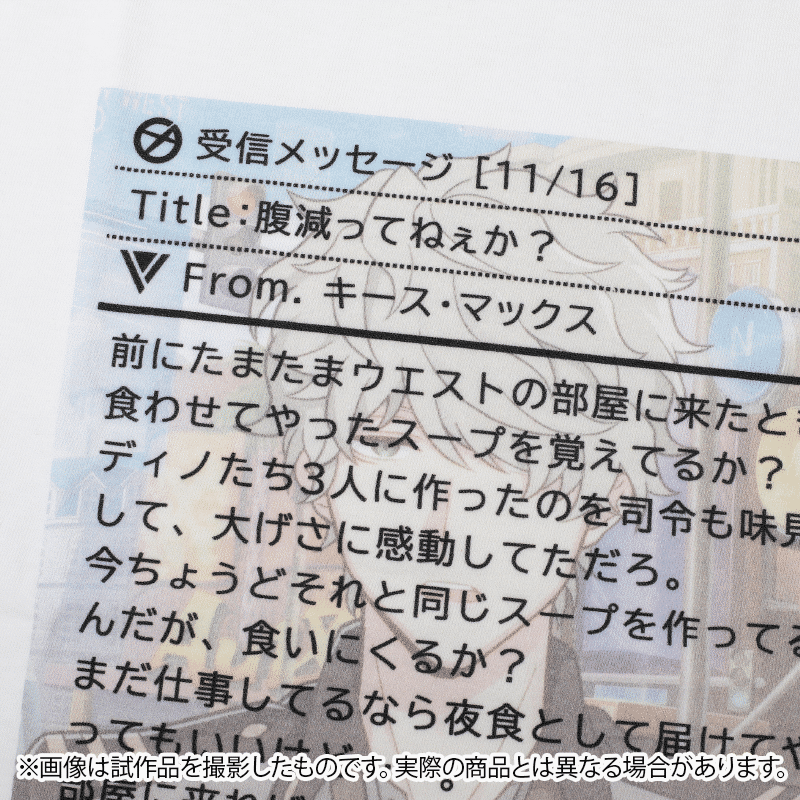 受信メッセージ [11/16]
Title:腹減ってねぇか？
From. キース・マックス
前にたまたまウエストの部屋に来たと
食わせてやったスープを覚えてるか？
ディノたち3人に作ったのを司令も味見
して、大げさに感動してただろ。
今ちょうどそれと同じスープを作ってる
んだが、食いにくるか？
まだ仕事してるなら夜食として届けてや
ってもいいけど
部屋に来れば
※画像は試作品を撮影したものです。実際の商品とは異なる場合があります。
N